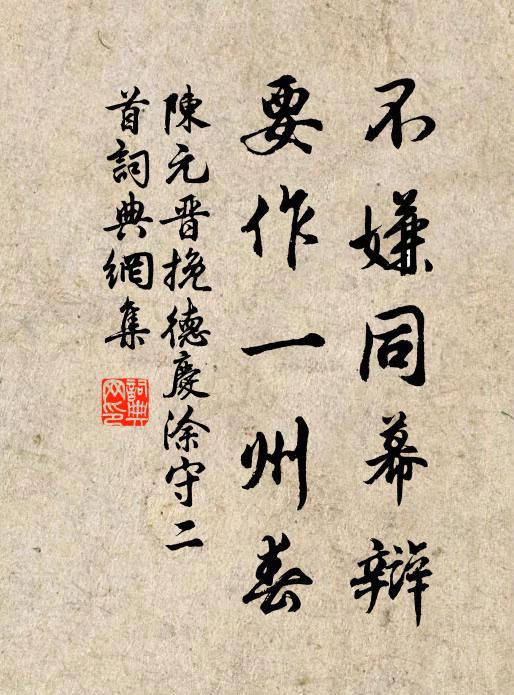 不嫌同幕辯
要作一州春
陳元晋挽德慶涂守二
首詞典網集
詞典网印